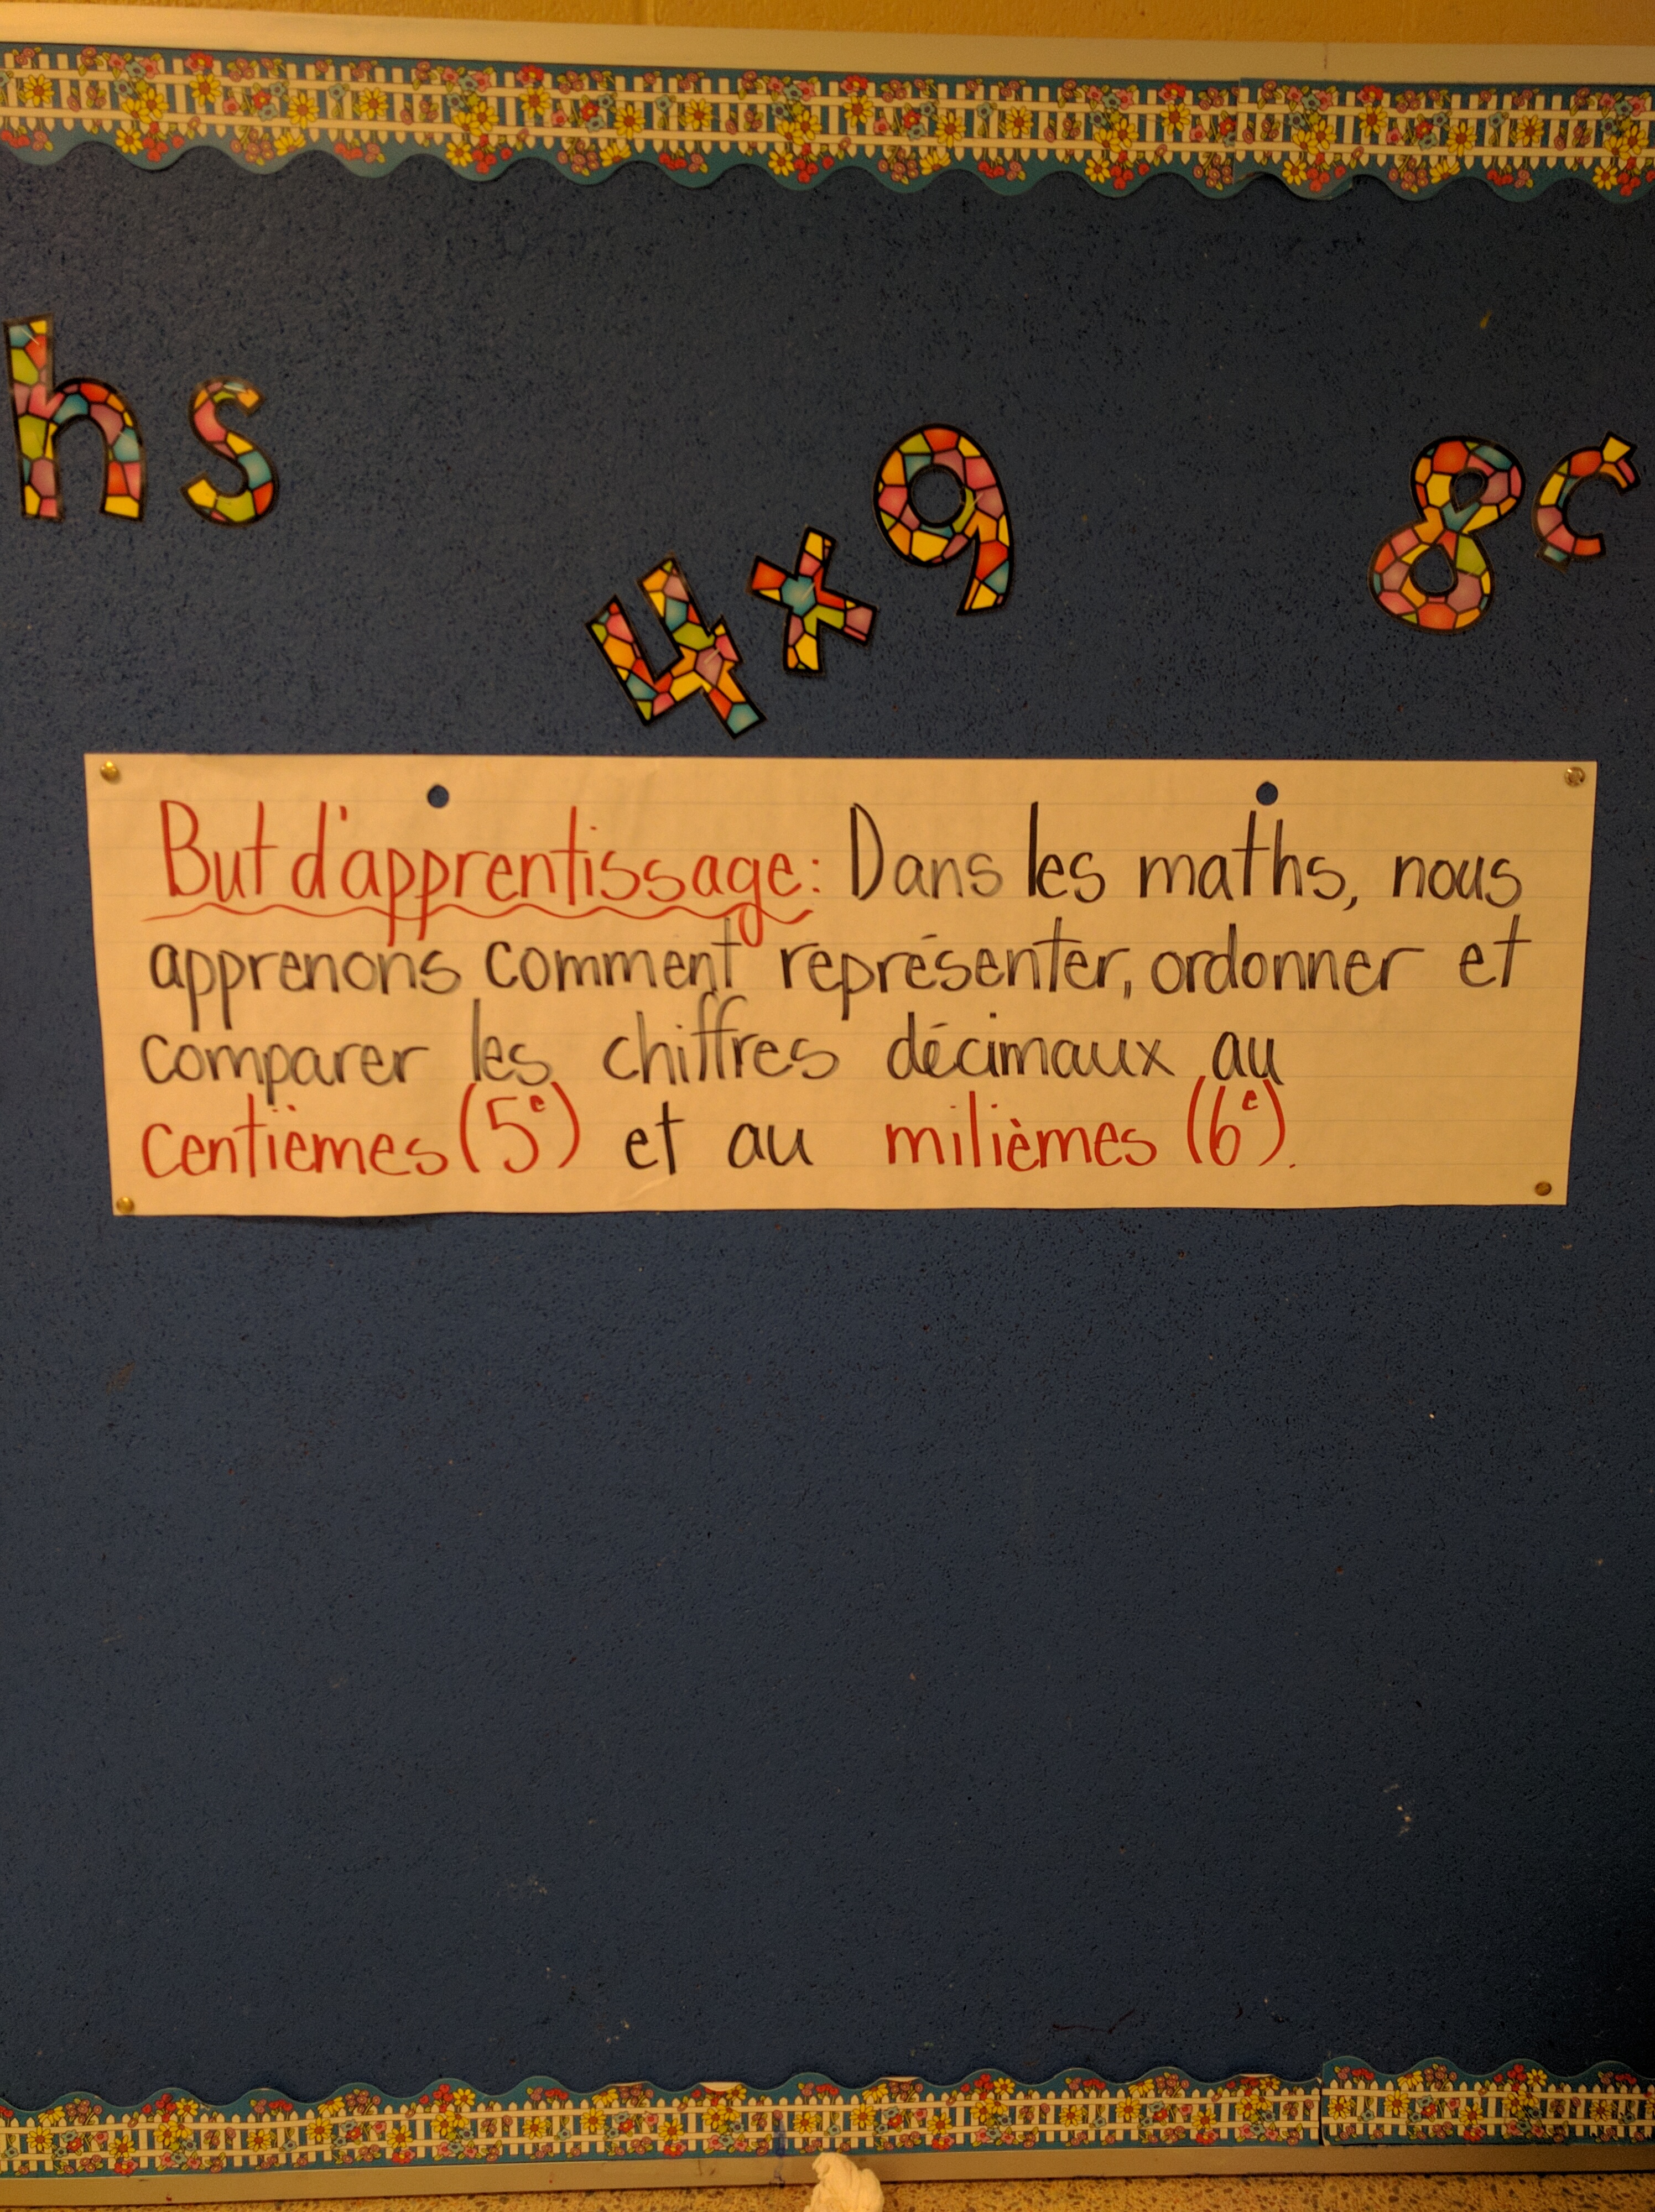 hs
4x9
8c
But d'apprentissage: Dans les maths, nous
apprenons comment représenter, ordonner et
comparer les chiffres décimaux au
centièmes (5e) et au milièmes (6e).